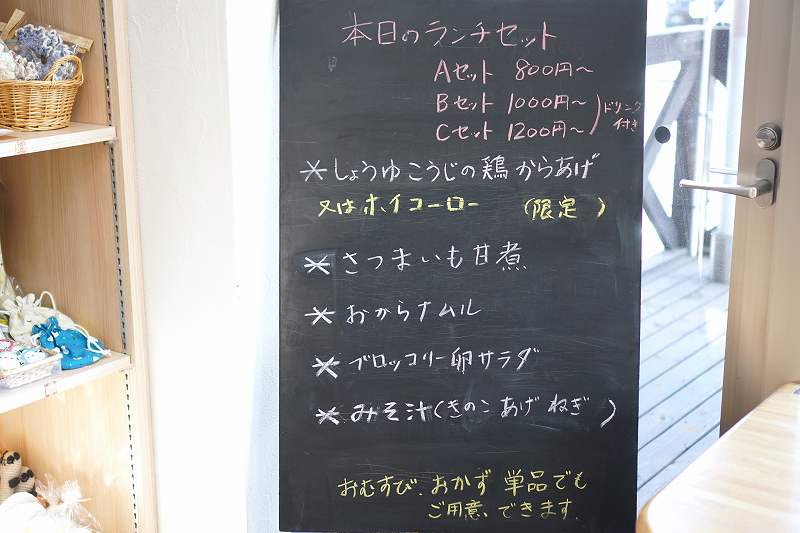 本日のランチセット
Aセット 800円～
Bセット 1000円～
Cセット 1200円～
ドリンク
付き
＊しょうゆこうじの鶏からあげ
又はホイコーロー （限定 ）
＊さつまいも甘煮
＊おからナムル
＊ブロッコリー卵サラダ
＊みそ汁（きのこ あげ ねぎ ）
おむすび、おかず 単品でも
ご用意、できます。